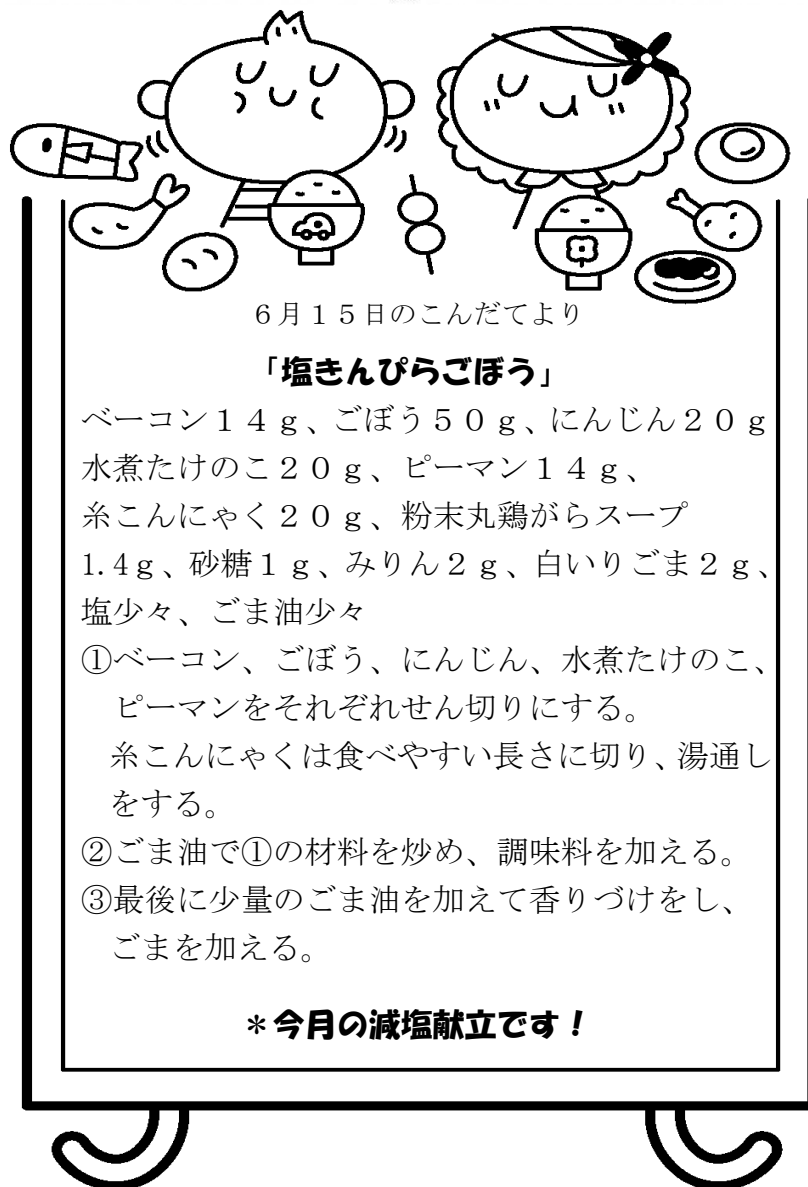 6月15日のこんだてより
「塩きんぴらごぼう」
ベーコン14g、ごぼう50g、にんじん20g
水煮たけのこ20g、ピーマン14g、
糸こんにゃく20g、粉末丸鶏がらスープ
1.4g、砂糖1g、みりん2g、白いりごま2g、
塩少々、ごま油少々
①ベーコン、ごぼう、にんじん、水煮たけのこ、
ピーマンをそれぞれせん切りにする。
糸こんにゃくは食べやすい長さに切り、湯通し
をする。
②ごま油で①の材料を炒め、調味料を加える。
③最後に少量のごま油を加えて香りづけをし、
ごまを加える。
＊今月の減塩献立です！